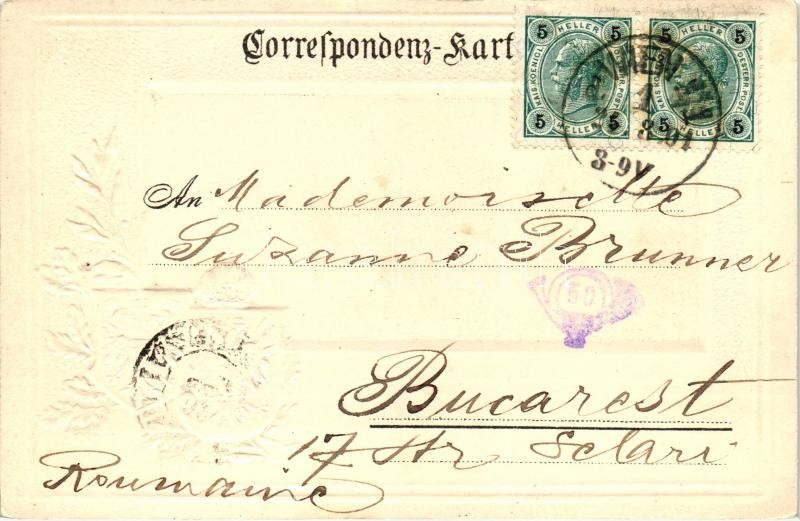 Correspondenz-Kart
5 HELLER 5
KAIS. KOENIGL. OESTERR. POST
5 HELLER 5
5 HELLER 5
KAIS. KOENIGL. OESTERR. POST
5 HELLER 5
WIEN
8 01
8-9V
An Mademoiselle
Suzanne Brunner
50
Bucarest
17 Str Selari
Roumanie